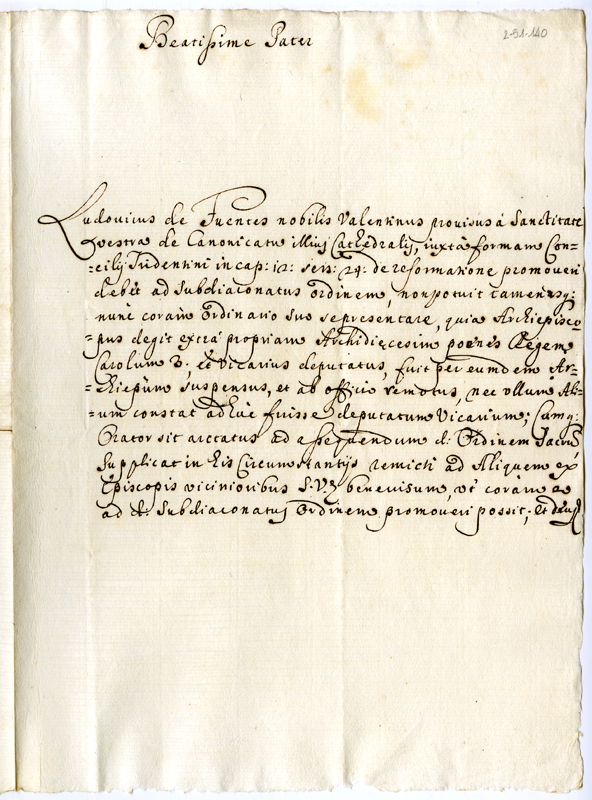 2-51-140
Beatissime Pater
Ludovicus de Fuentes nobilis Valentinus provisus á Sanctitate
vestra de Canonicatu illius Cathedralis, iuxta formam Con=
=cilij Tridentini in cap: 12: sess: 24: de reformatione promoveri
debet ad Subdiaconatus Ordinem, non potuit tamen usq;
nunc coram Ordinario suo representare, quia Archiepisco
=pus degit extrá propriam Archidiœcesim poenes Regem
Carolum 3; et Vicarius deputatus, fuit per eumdem Ar=
=chiepũm Suspensus, et ab officio remotus, nec ullum Ali=
=um constat adhúc fuisse deputatum Vicarium; Cumq;
Orator sit arctatus ad assequendum d: Ordinem Sacrũ,
Supplicat in his Circumstantijs remicti ad Aliquem ex
Episcopis vicinioribus S.V. benevisum, vt coràm eo
ad d: Subdiaconatus Ordinem promoveri possit; et